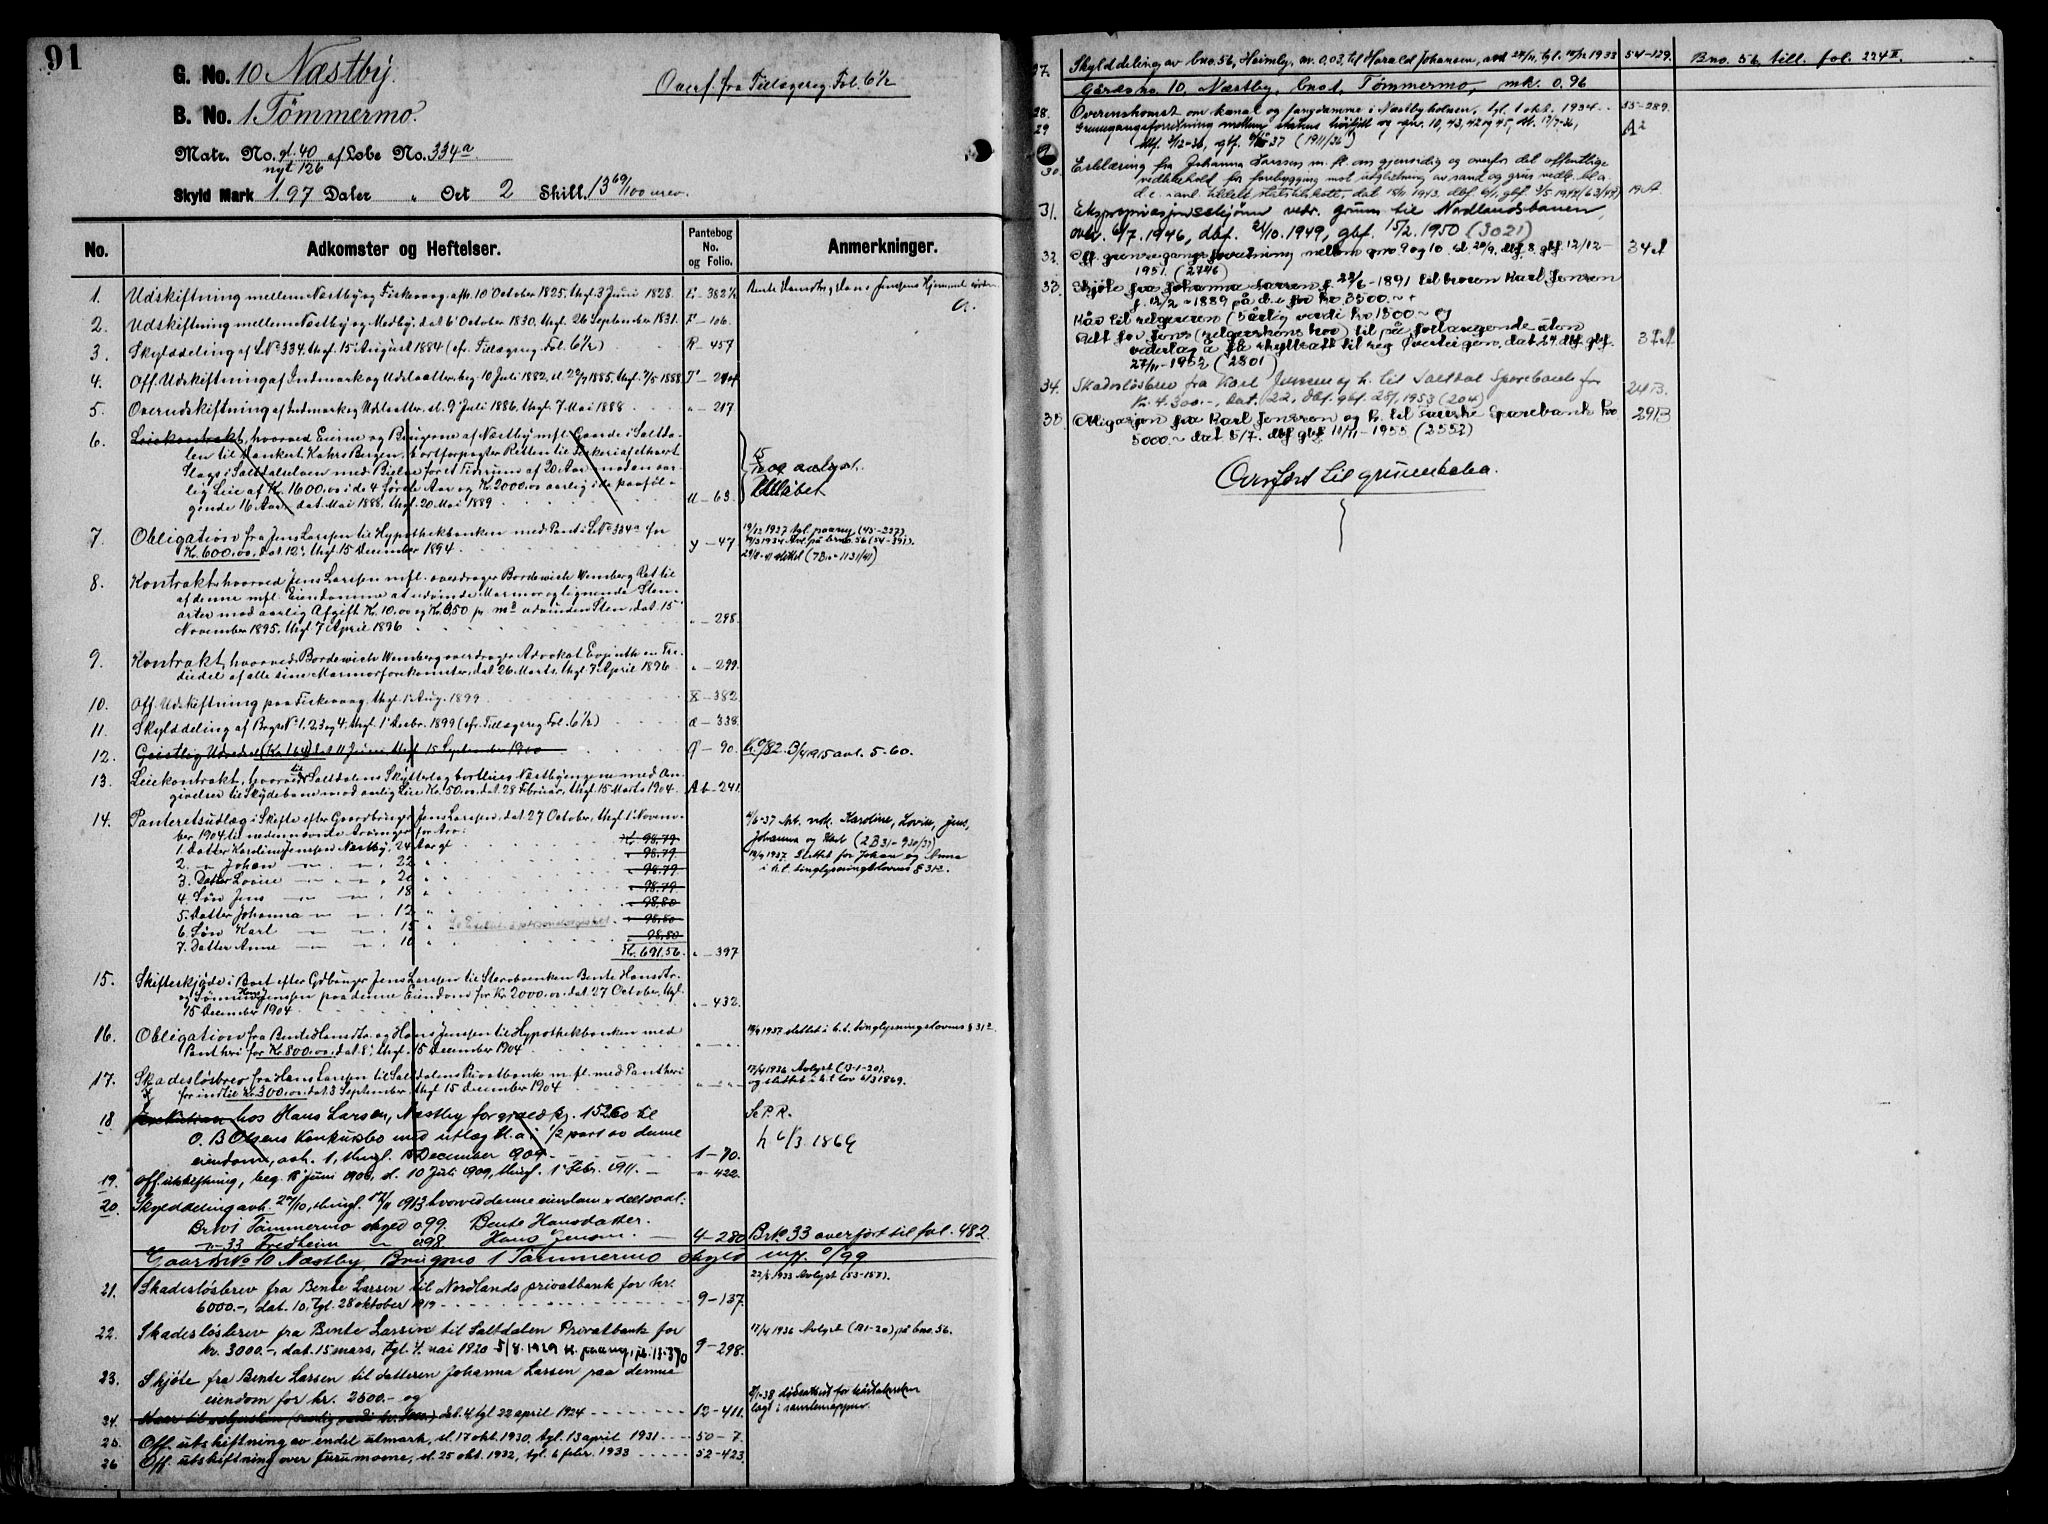 91
G. No. 10 Næstby.
Overf. fra Tillægsreg. Fol. 6½
B. No. 1 Tømmermo.
Matr. No. gl. 40 af Løbe No. 334a
nyt 126
Skyld Mark 1.97 Daler " Ort 2 Skill. 13 69/100
No. Adkomster og Heftelser. Pantebog No. og Folio. Anmerkninger.
1. Udskiftning mellem Næstby og Fiskvaag, afh. 10 October 1825, thgl. 3 Juni 1828. E-382½
2. Udskiftning mellem Næstby og Medby, dat 6 October 1830, thgl. 26 September 1831. F-106.
3. Skylddeling af L.No 334, thgl. 15 August 1884 (cfr. Tillægsreg. Fol. 6½) R-457
4. Off. Udskiftning af Indmark og Udslaatter, beg. 10 Juli 1882, sl. 29/7 1885, thgl. 7/5 1888.
5. Overudskiftning af Indmark og Udslaatter, sl. 9 Juli 1886, thgl. 7 Mai 1888 " - 217
6. Leiekontrakt, hvorved Eierne og Brugerne af Næstby mfl. Gaarde i Saltda-
len til Hankert, Kahrs Bergen, bortforpagter Retten til Fiskeri af ethvert
Slags i Saltdalselven med Bielve for et Tidsrum af 20 Aar mod en aar-
lig Leie af Kr. 1600.00 i de 4 første Aar og Kr. 2000.00 aarlig i de paaføl-
gende 16 Aar, dat Mai 1888, thgl. 20 Mai 1889 U-63.
avlyst.
Udløbet
7. Obligation fra Jens Larssen til Hypothekbanken med Pant i L.No 334a for
Kr. 600.00, dat. 12, thgl. 15 December 1894. y-47
19/12 1927 tgl. paany (45-227).
1934 Avl. på brno. 56 (54-391).
slettet (7B-1131/41)
8. Kontrakt, hvorved Jens Larssen mfl. overdrager Bordewich Wemberg Ret til
af denne mfl. Eiendomme at udvinde Marmor og lignende Sten-
arter mod aarlig Afgift Kr. 10.00 og Kr. 0,50 pr. m³ udvunden Sten, dat. 15
November 1895, thgl. 7 April 1896 " - 298.
9. Kontrakt, hvorved Bordewich Wemberg overdrager Advokat Evjenth en Tre-
diedel af alle sine Marmorforekomster, dat 26 Marts, thgl. 7 April 1896 " - 299.
10. Off. Udskiftning paa Fiskvaag, thgl. 1 Aug. 1899 X-382
11. Skylddeling af Brugs No 1, 2, 3 og 4, thgl. 1 Decbr. 1899 (cfr. Tillægsreg. Fol. 6½) a-338.
12. Geistlig Udredsel (Kr. 1.64) dat 11 Juni, thgl. 15 September 1900 - 90. avl. 5-60.
13. Leiekontrakt, hvorved til Saltdalens Skytterlag bortleies Næstbyengene med An-
givelser til Skydebane mod aarlig Leie Kr. 50.00, dat. 28 Februar, thgl. 15 Marts 1904. Ab-241.
14. Panteretsudlæg i Skifte efter Gaardbruger Jens Larssen, dat 27 October, thgl. 1 Novem-
ber 1904 til nedennævnte Arvinger for Arv:
1. Datter Karoline Jenssen Næstby, 24 Aar gl. Kr. 98.79
2. " Johan " " 22 " 98.79
3. Datter Lovise " " 20 " 98.79
4. Søn Jens " " 18 " 98.79
5. Datter Johanna " " 12 " 98,80
6. Søn Karl " " 15 " 98,80
7. Datter Anne " " 10 " 98,80
Kr. 691,56. " - 397
4/6-37 Avl. vdk. Karoline, Lovise, Jens,
Johanna og Karl (2B31-930/37)
1937 Slettet for Johan og Anna
i h.t. tinglysningslovens § 312.
15. Skifteskjøde i Boet efter Gdbruger Jens Larssen til Storebonken Bente Hansdtr.
og Sønnen Hans Jenssen paa denne Eiendom for Kr. 2000.00, dat. 27 October, thgl.
15 December 1904 " - 432.
16. Obligation fra Bente Hansdtr. og Hans Jenssen til Hypothekbanken med
Pant heri for Kr. 800.00, dat. 8, thgl. 15 December 1904 " - " .
1937 slettet i h.t. tinglysningslovens § 312.
17. Skadesløsbrev fra Hans Larssen til Saltdalens Privatbank m.fl. med Pant heri
for indtil Kr. 300.00, dat. 3 September, thgl. 15 December 1904 " - " .
17/4 1936 Avlyst (13-1-20).
og slettet i h.t. lov 6/3 1869.
18. Exekution hos Hans Larsen, Næstby for gjæld kr. 152.60 til
O. B. Olsens Konkursbo med utlæg bl. a. i ½ part av denne
eiendom, avh. 1, thingl. 15 December 1904 1-70.
Se P.R.
h. 6/3. 1869
19. Off. utskiftning, beg. 18 Juni 1906, sl. 10 Juli 1909, thingl. 1 Febr. 1911. " - 422.
20. Skylddeling avh. 29/10, thingl. 17/11 1913 hvorved denne eiendom er delt saal:
Br.no 1 Tømmermo skyld 0.99. Bente Hansdatter.
" 33 Fredheim " 0.98. Hans Jensen. 4-280 Br.No. 33 overført til fol. 482.
Gaards No 10 Næstby, Brugsno 1 Tømmermo skyld mrk. 0/99
21. Skadesløsbrev fra Bente Larsen til Nordlands privatbank for kr.
6000.-, dat. 10, tgl. 28 oktober 1919 9-137.
22/8 1933 Avlyst (53-157).
22. Skadesløsbrev fra Bente Larsen til Saltdalen Privatbank for
kr. 3000.-, dat. 15 mars, tgl. 4. mai 1920 5/8.1929 tgl. paany, pb. 13-370 9-298.
17/4 1936 Avlyst (13-1-20) på bno. 56.
23. Skjøte fra Bente Larsen til datteren Johanna Larsen paa denne
eiendom for kr. 2500.- og
24. Kaar til selgersken (5 aarlig verdi kr. 500.-) dat. 4, tgl 22 april 1924 12-411.
lagt i samlemappen.
25. Off. utskiftning av endel utmark, sl. 17 okt. 1930, tgl. 13 april 1931 50-7.
26 Off. utskiftning over furumoene, sl. 25 okt. 1932, tgl. 6 febr. 1933 52-423.
27. Skylddeling av bno. 56, Heimly, m. 0.03, til Harald Johansen, avh 1933 54-129. Bno. 56 till. fol. 224 II.
Gårdsno. 10, Næstby, bno 1, Tømmermo, mk. 0.96
28. Overenskomst om kanal og fangdamme i Næstbyholmen, tgl. 1 okt. 1934 55-289.
29 Grensegangsforretning mellem statens høifjell og gnr. 10, 43, 42 og 45, bl. 17/7-36, (1911/36) A2
30. Erklæring fra Johanna Larssen m. fl. om gjensidig og overfor det offentlige
vedlikehold for forebygging mot utglidning av sand og grus vedk. bl.a.
d.e. samt tillatt statstilskott, dat 1943. dbf. 6/1, gbf. 3/5 1944 (63/44) 19A
31. Ekspropriasjonsskjønn vedr. grunn til Nordlandsbanen,
avh. 6/7.1946, dbf. 21/10.1949, gbf. 15/2.1950 (3021)
32. Off. grensegangsforretning mellom gnr. 9 og 10 sl 20/9, dbf. 8. gbf. 12/12- 34A
1951. (2746)
33. Skjøte fra Johanna Larssen f. 22/6-1891 til broren Karl Jenssen
f. 12/2-1889 på d.e. for kr. 3500.~ +
Kår til selgeren (5 årlig verdi kr. 1500.~ og
27/11-1952 (2801)
34. Skadesløsbrev fra Karl Jenssen og h. til Saltdal Sparebank for 24B.
kr. 4.300.-, dat. 22, dbf. gbf. 28/1.1953 (204)
35 Obligasjon fra Karl Jenssen og h. til Sparebank kr. 29B
5000.~ dat 5/7. dbf gbf 11/11-1955 (2552)
Overført til grunnboka.